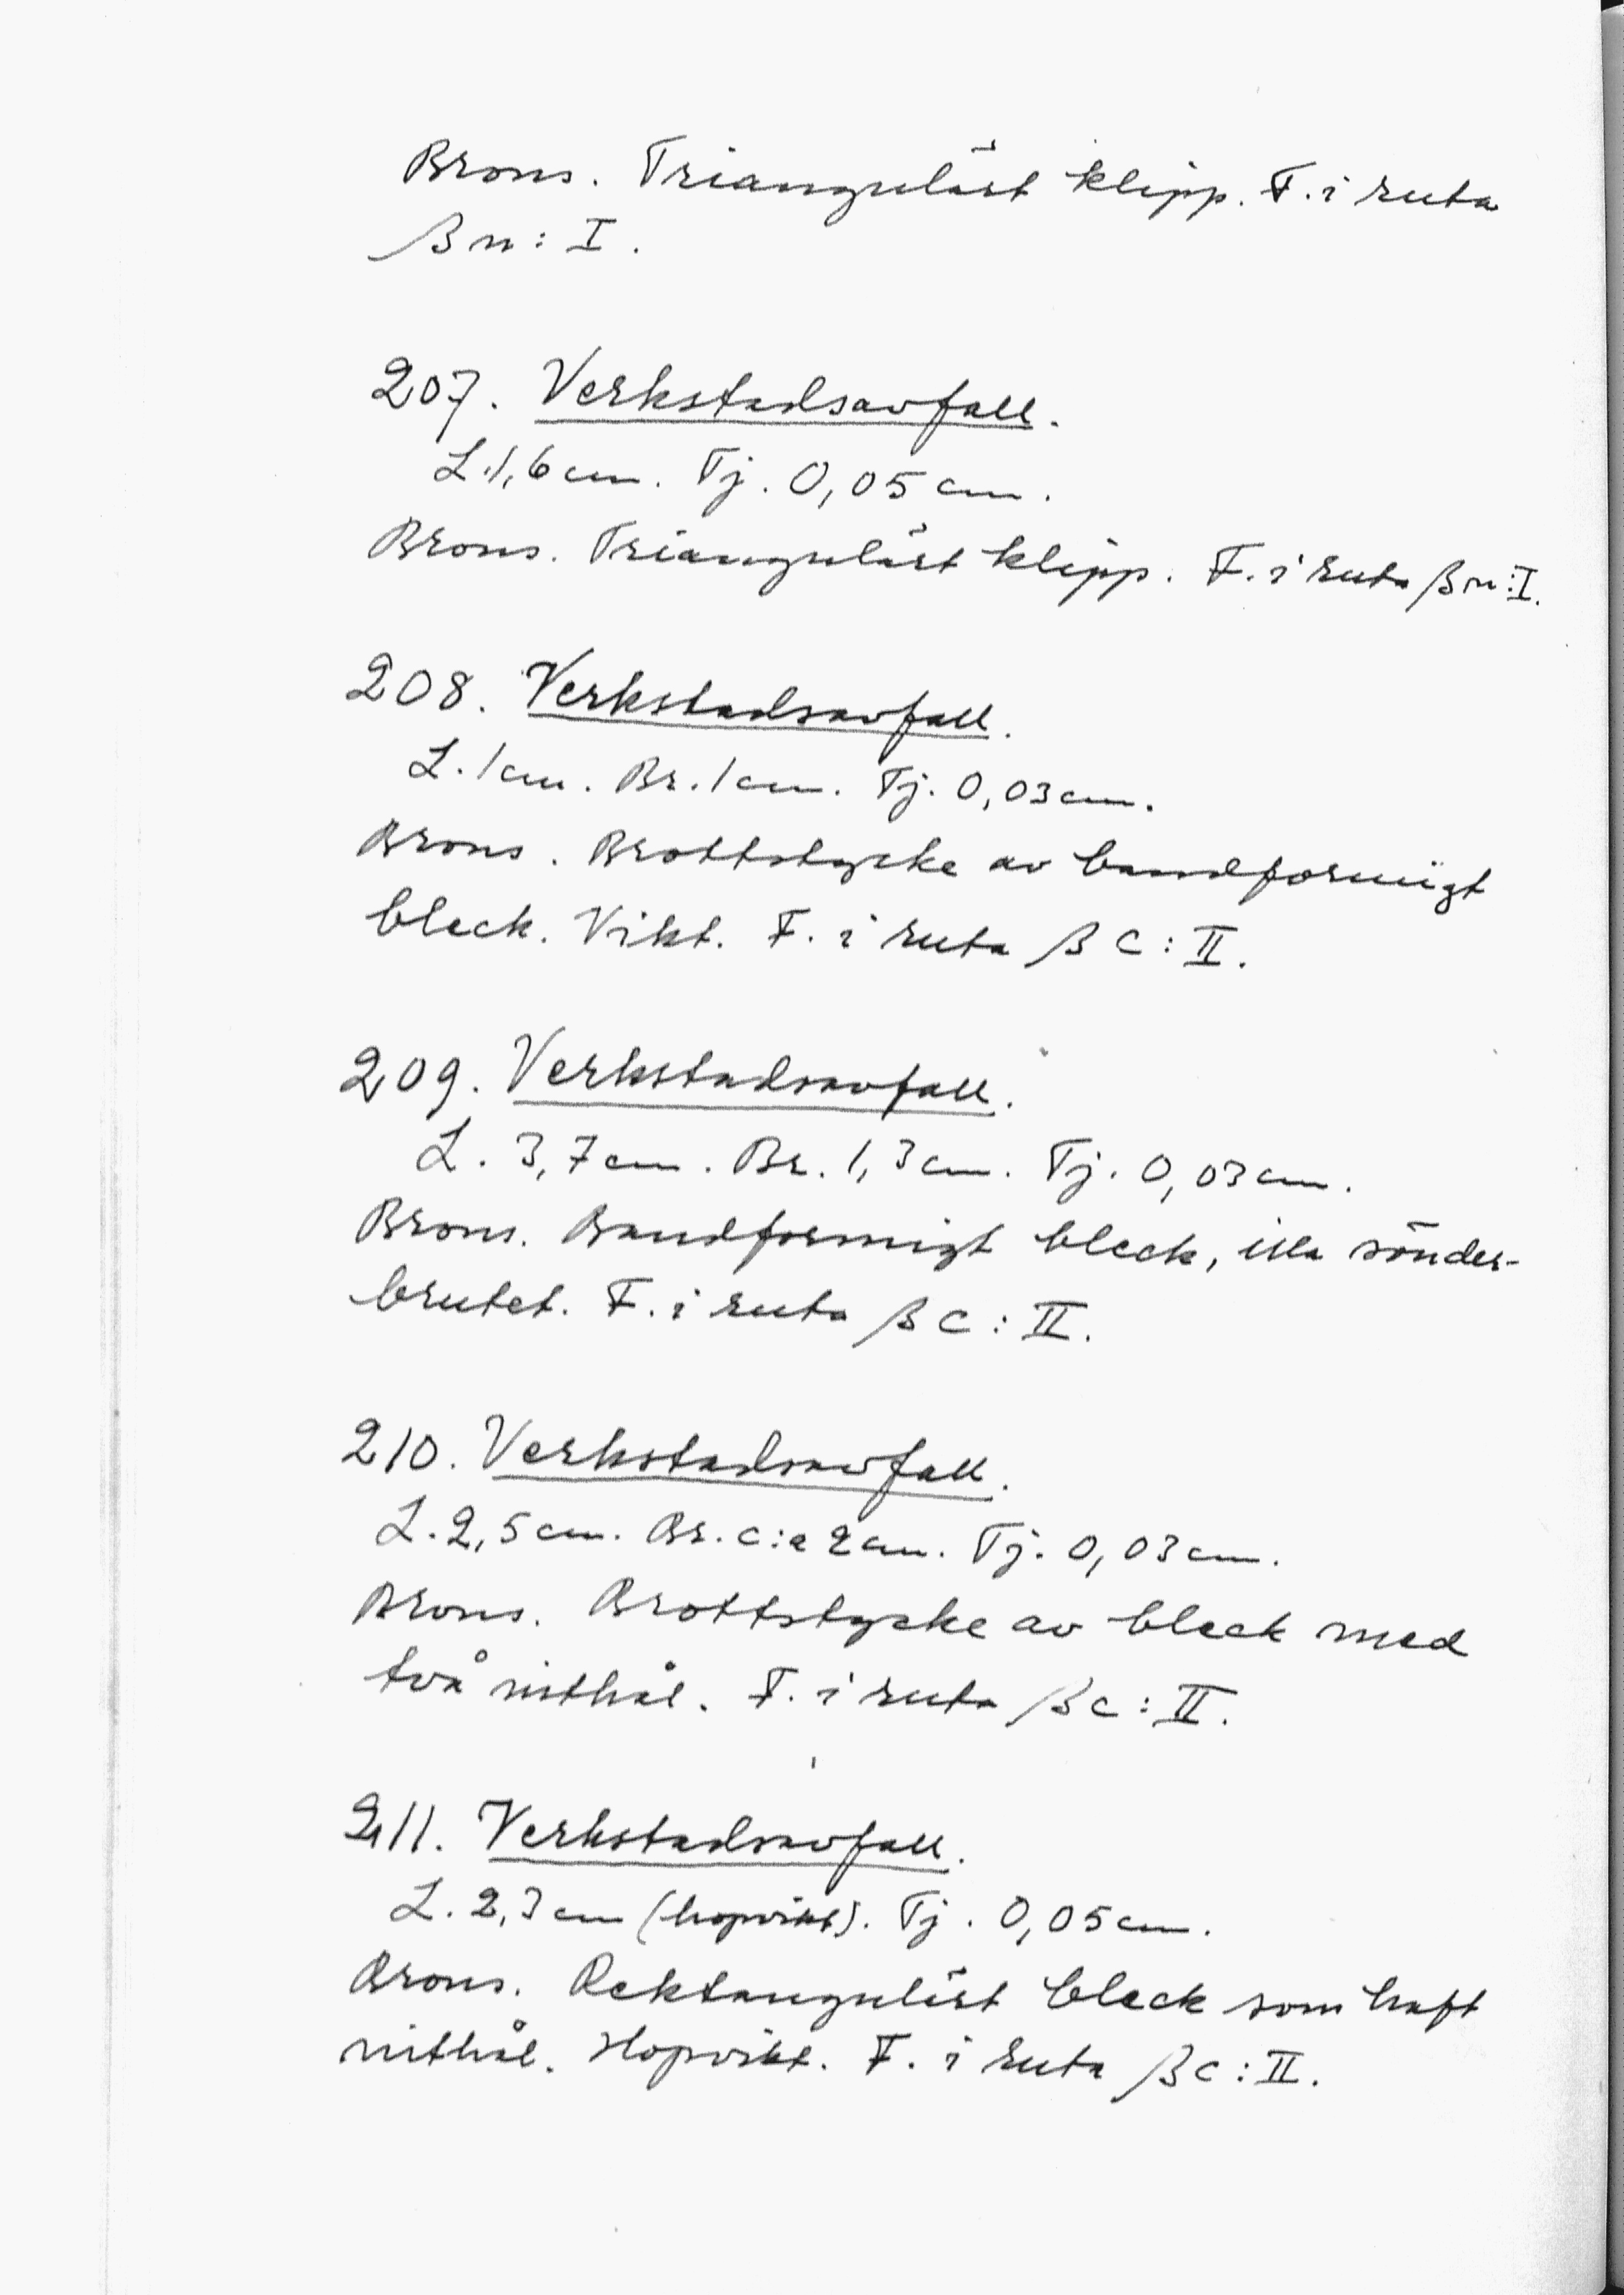 Brons. Triangulärt klipp. F. i ruta
βn: I.
207. Verkstadsavfall.
L. 1,6 cm. Tj. 0,05 cm.
Brons. Triangulärt klipp. F. i ruta βn: I.
208. Verkstadsavfall.
L. 1 cm. Br. 1 cm. Tj. 0,03 cm.
Brons. Brottstycke av bandformigt
bleck. Vikt. F. i ruta β C: II.
209. Verkstadsavfall.
L. 3,7 cm. Br. 1,3 cm. Tj. 0,03 cm.
Brons. Bandformigt bleck, illa sönder-
brutet. F. i ruta β C: II.
210. Verkstadsavfall.
L. 2,5 cm. Br. c:a 2 cm. Tj. 0,03 cm.
Brons. Brottstycke av bleck med
två nithål. F. i ruta β C: II.
211. Verkstadsavfall.
L. 2,3 cm (hopvikt). Tj. 0,05 cm.
Brons. Rektangulärt bleck som haft
nithål. Hopvikt. F. i ruta β C: II.